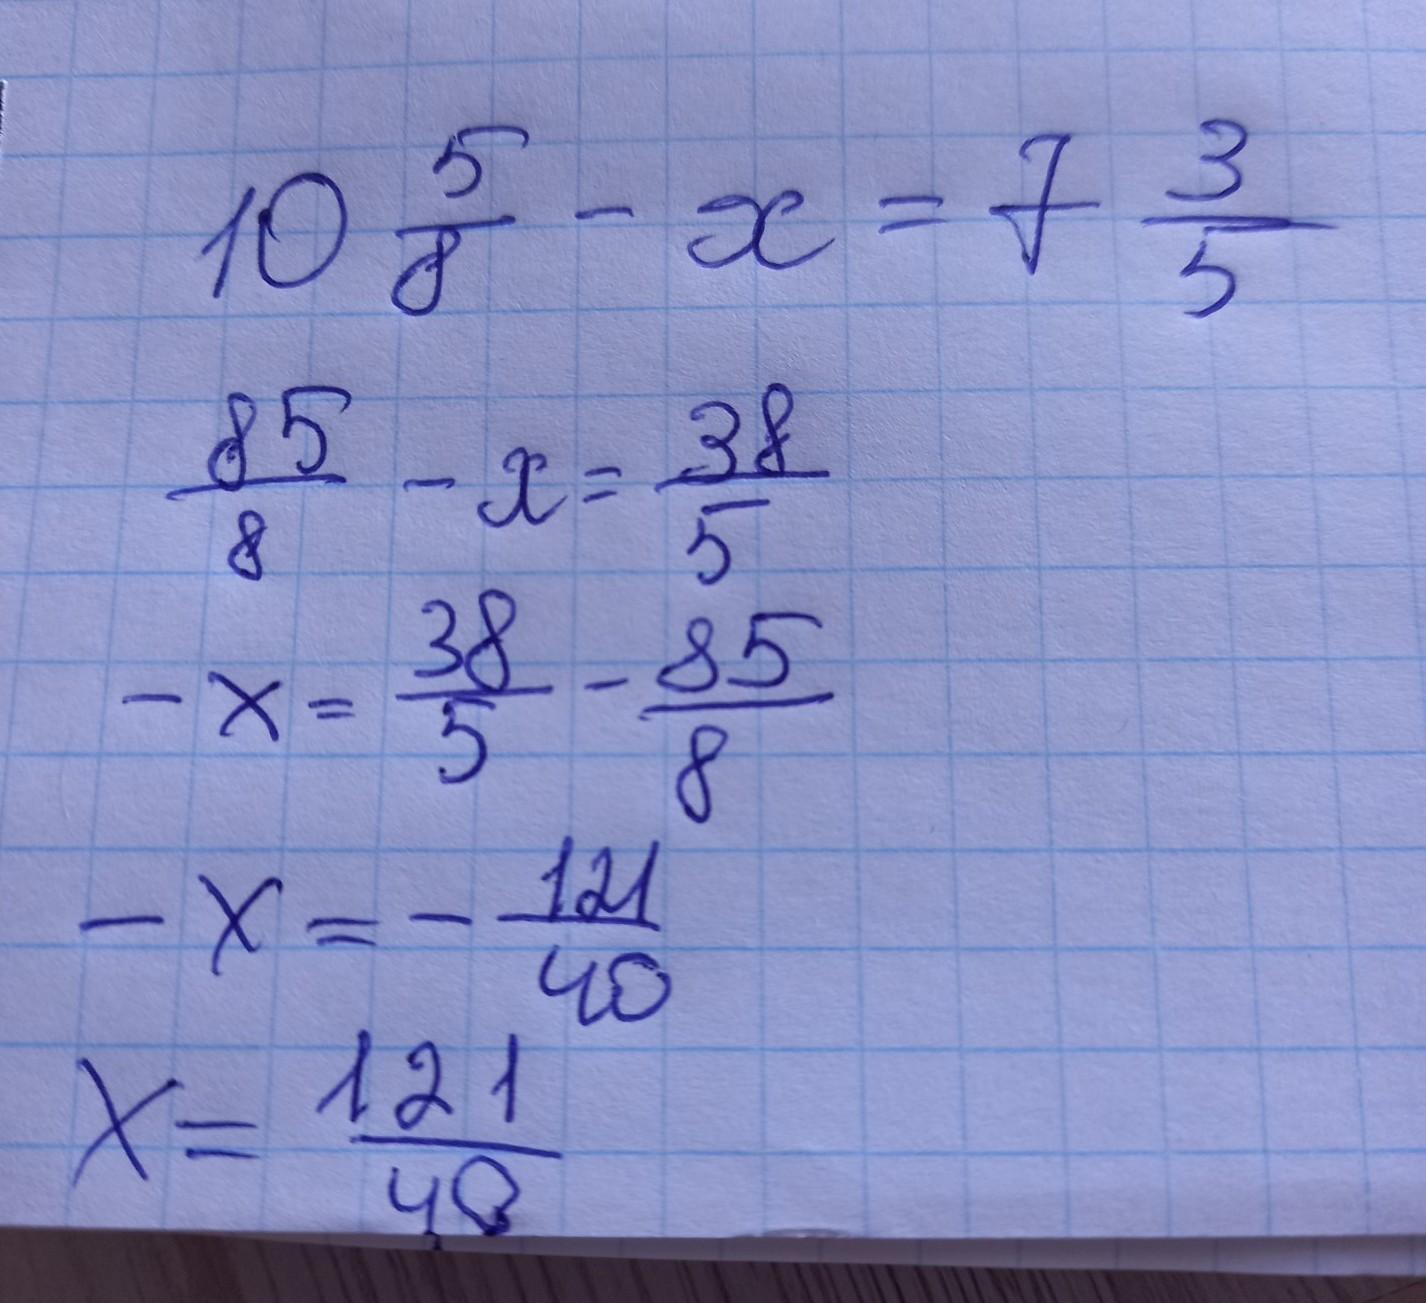 10 5/8 - x = 7 3/5
85/8 - x = 38/5
- x = 38/5 - 85/8
- x = - 121/40
x = 121/40